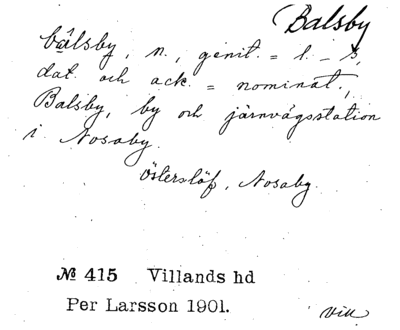 Balsby
bålsby, n., genit. = l. - s,
dat. och ack. = nominat.,
Balsby, by och järnvägsstation
i Nosaby.
Österslöf, Nosaby.
№ 415 Villands hd
Per Larsson 1901.
Vill